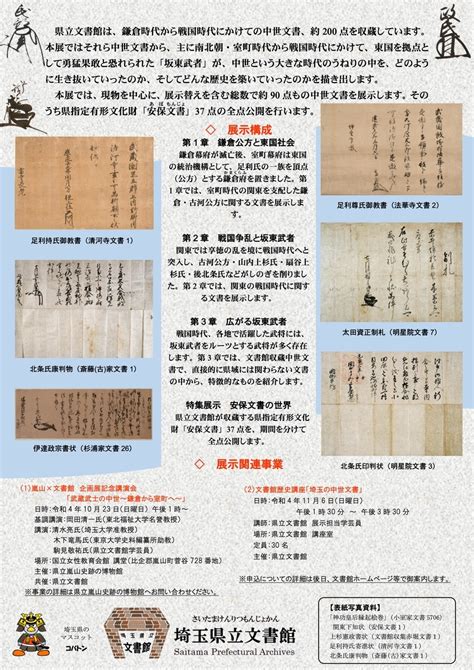 県立文書館は、鎌倉時代から戦国時代にかけての中世文書、約200点を収蔵しています。
本展ではそれら中世文書から、主に南北朝・室町時代から戦国時代にかけて、東国を拠点と
して勇猛果敢と恐れられた「坂東武者」が、中世という大きな時代のうねりの中を、どのよう
に生き抜いていったのか、そしてどんな歴史を築いていったのかを描き出します。
本展では、現物を中心に、展示替えを含む総数で約90点もの中世文書を展示します。その
うち県指定有形文化財「安保文書」37点の全点公開を行います。
あぼもんじょ
◇ 展示構成
第1章 鎌倉公方と東国社会
鎌倉幕府が滅亡後、室町幕府は東国
の統治機構として、足利氏の一族を頂点
(公方)とする鎌倉府を置きました。第
1章では、室町時代の関東を支配した鎌
倉・古河公方に関する文書を展示しま
す。
第2章 戦国争乱と坂東武者
関東では享徳の乱を境に戦国時代へと
突入し、古河公方・山内上杉氏・扇谷上
杉氏・後北条氏などがしのぎを削りまし
た。第2章では、関東の戦国時代に関
する文書を展示します。
第3章 広がる坂東武者
戦国時代、各地で活躍した武将には、
坂東武者をルーツとする武将が多く存在
します。第3章では、文書館収蔵中世文
書で、直接的に県域には関わらない文書
の中から、特徴的なものを紹介します。
特集展示 安保文書の世界
県立文書館が収蔵する県指定文化財
「安保文書」37点を、期間を分けて
全点公開します。
足利持氏御教書(清河寺文書1)
北条氏康判物(斎藤(古)家文書1)
伊達政宗書状(杉浦家文書26)
足利尊氏御教書(法華寺文書2)
太田資正制札(明星院文書7)
北条氏印判状(明星院文書3)
◇ 展示関連事業
(1)嵐山×文書館 企画展記念講演会
「武蔵武士の中世~鎌倉から室町へ~」
日時:令和4年10月23日(日曜日)午後1時~
基調講演:岡田清一氏(東北福祉大学名誉教授)
講演:清水亮氏(埼玉大学准教授)
木下竜馬氏(東京大学史料編纂所助教)
駒見敬祐氏(県立文書館学芸員)
場所:国立女性教育会館 講堂(比企郡嵐山町菅谷728番地)
主催:県立嵐山史跡の博物館
共催:県立文書館
※事業の詳細は県立嵐山史跡の博物館へお問い合わせください。
(2)文書館歴史講座「埼玉の中世文書」
日時:令和4年11月6日(日曜日)
午後1時30分 ~ 午後3時30分
講師:県立文書館 展示担当学芸員
場所:県立文書館 講座室
定員:30名
主催:県立文書館
※申込についての詳細は後日、文書館ホームページ等で御案内します。
埼玉県の
マスコット
コバトン
埼玉県立
文書館
さいたまけんりつもんじょかん
埼玉県立文書館
Saitama Prefectural Archives
【表紙写真資料】
「神功皇后縁起絵巻」(小室家文書5706)
関東下知状(安保文書1)
上杉憲政書状(文書館収集文書2)
足利持氏寄進状(清河寺文書2)
北条家印判状(斎藤(古)家文書)